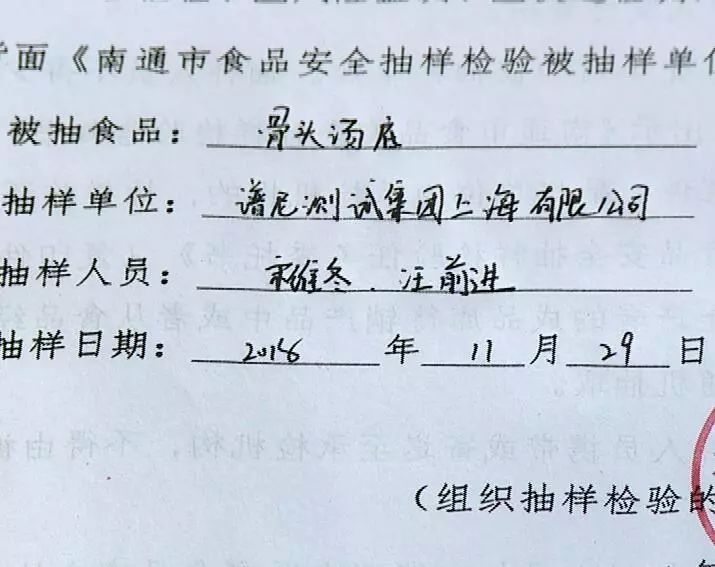 面《南通市食品安全抽样检验被抽样单位
被抽食品：骨头汤底
抽样单位：谱尼测试集团上海有限公司
抽样人员：宋维冬、汪前进
抽样日期：2018年11月29日
（组织抽样检验的